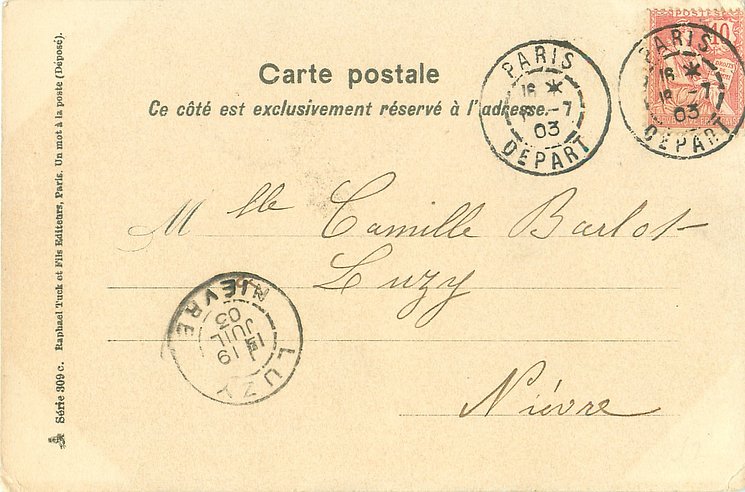 Carte postale
Ce côté est exclusivement réservé à l'adresse.
PARIS
18 -7
03
DEPART
10
PARIS
18 -7
03
DEPART
Mlle Camille Barlot
Luzy
Nièvre
LUZY
19
JUIL
03
NIÈVRE
Série 309 c. Raphael Tuck et Fils Editeurs, Paris. Un mot à la poste (Déposé).